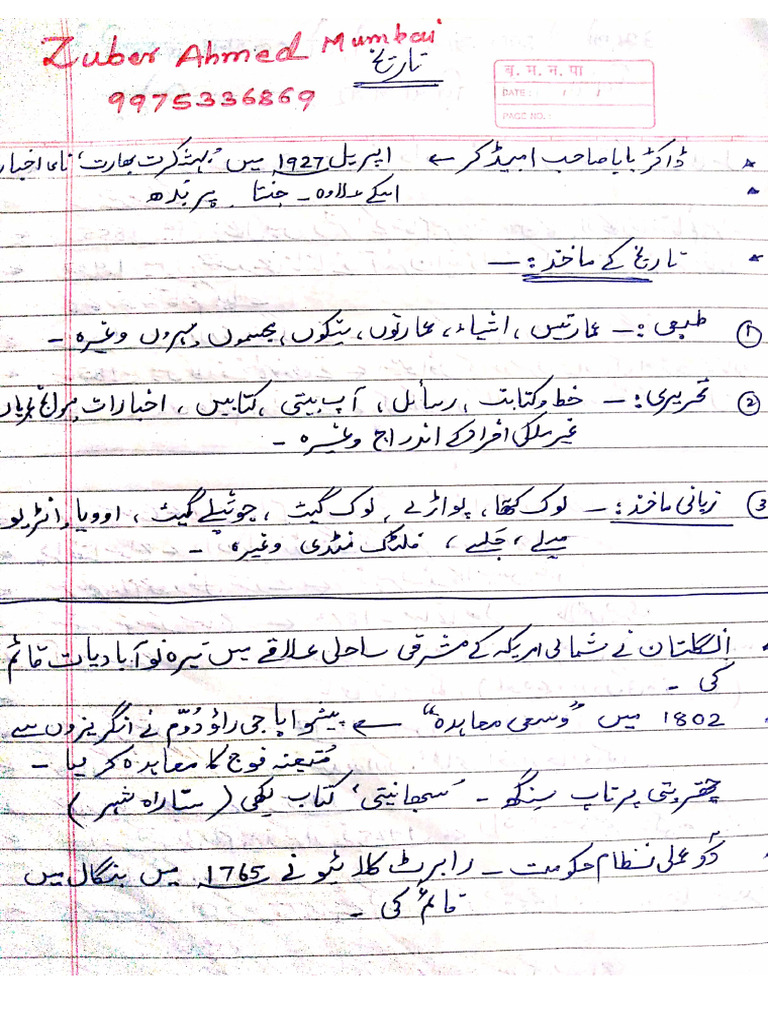 Zuber Ahmed Mumbai
9975336869
تاریخ
ब्र. म. न. पा
DATE : / /
PAGE NO. :
* ڈاکٹر بابا صاحب امبیڈکر ← اپریل 1927 میں 'بہشکرت بھارت' نامی اخبار
* اسکے علاوہ - جنتا پربُدھ
* تاریخ کے ماخذ :-
① طبعی :- عمارتیں ، اشیاء ، عمارتوں، سِکّوں، مجسموں، مہروں وغیرہ -
② تحریری :- خط و کتابت ، رسائل ، آپ بیتی ، کتابیں ، اخبارات
غیر ملکی افراد کے اندراج وغیرہ -
③ زبانی ماخذ :- لوک کتھا، پواڑے ، لوک گیت ، جوشیلے گیت ، اوویا، انٹرویو
میلے ، جلسے ، فلمیں وغیرہ -
انگلستان نے شمالی امریکہ کے مشرقی ساحلی علاقے میں تیرہ نو آبادیات قائم
کی -
1802 میں "وسئی معاہدہ" ← پیشوا باجی راؤ دُوّم نے انگریزوں سے
مُتعینہ فوج کا معاہدہ کر لیا -
چھترپتی پرتاپ سِنگھ - 'سبھانیتی' کتاب لکھی ( ستارہ شہر )
* دُو عملی نظام حکومت - رابرٹ کلائیو نے 1765 میں بنگال میں
قائم کی -